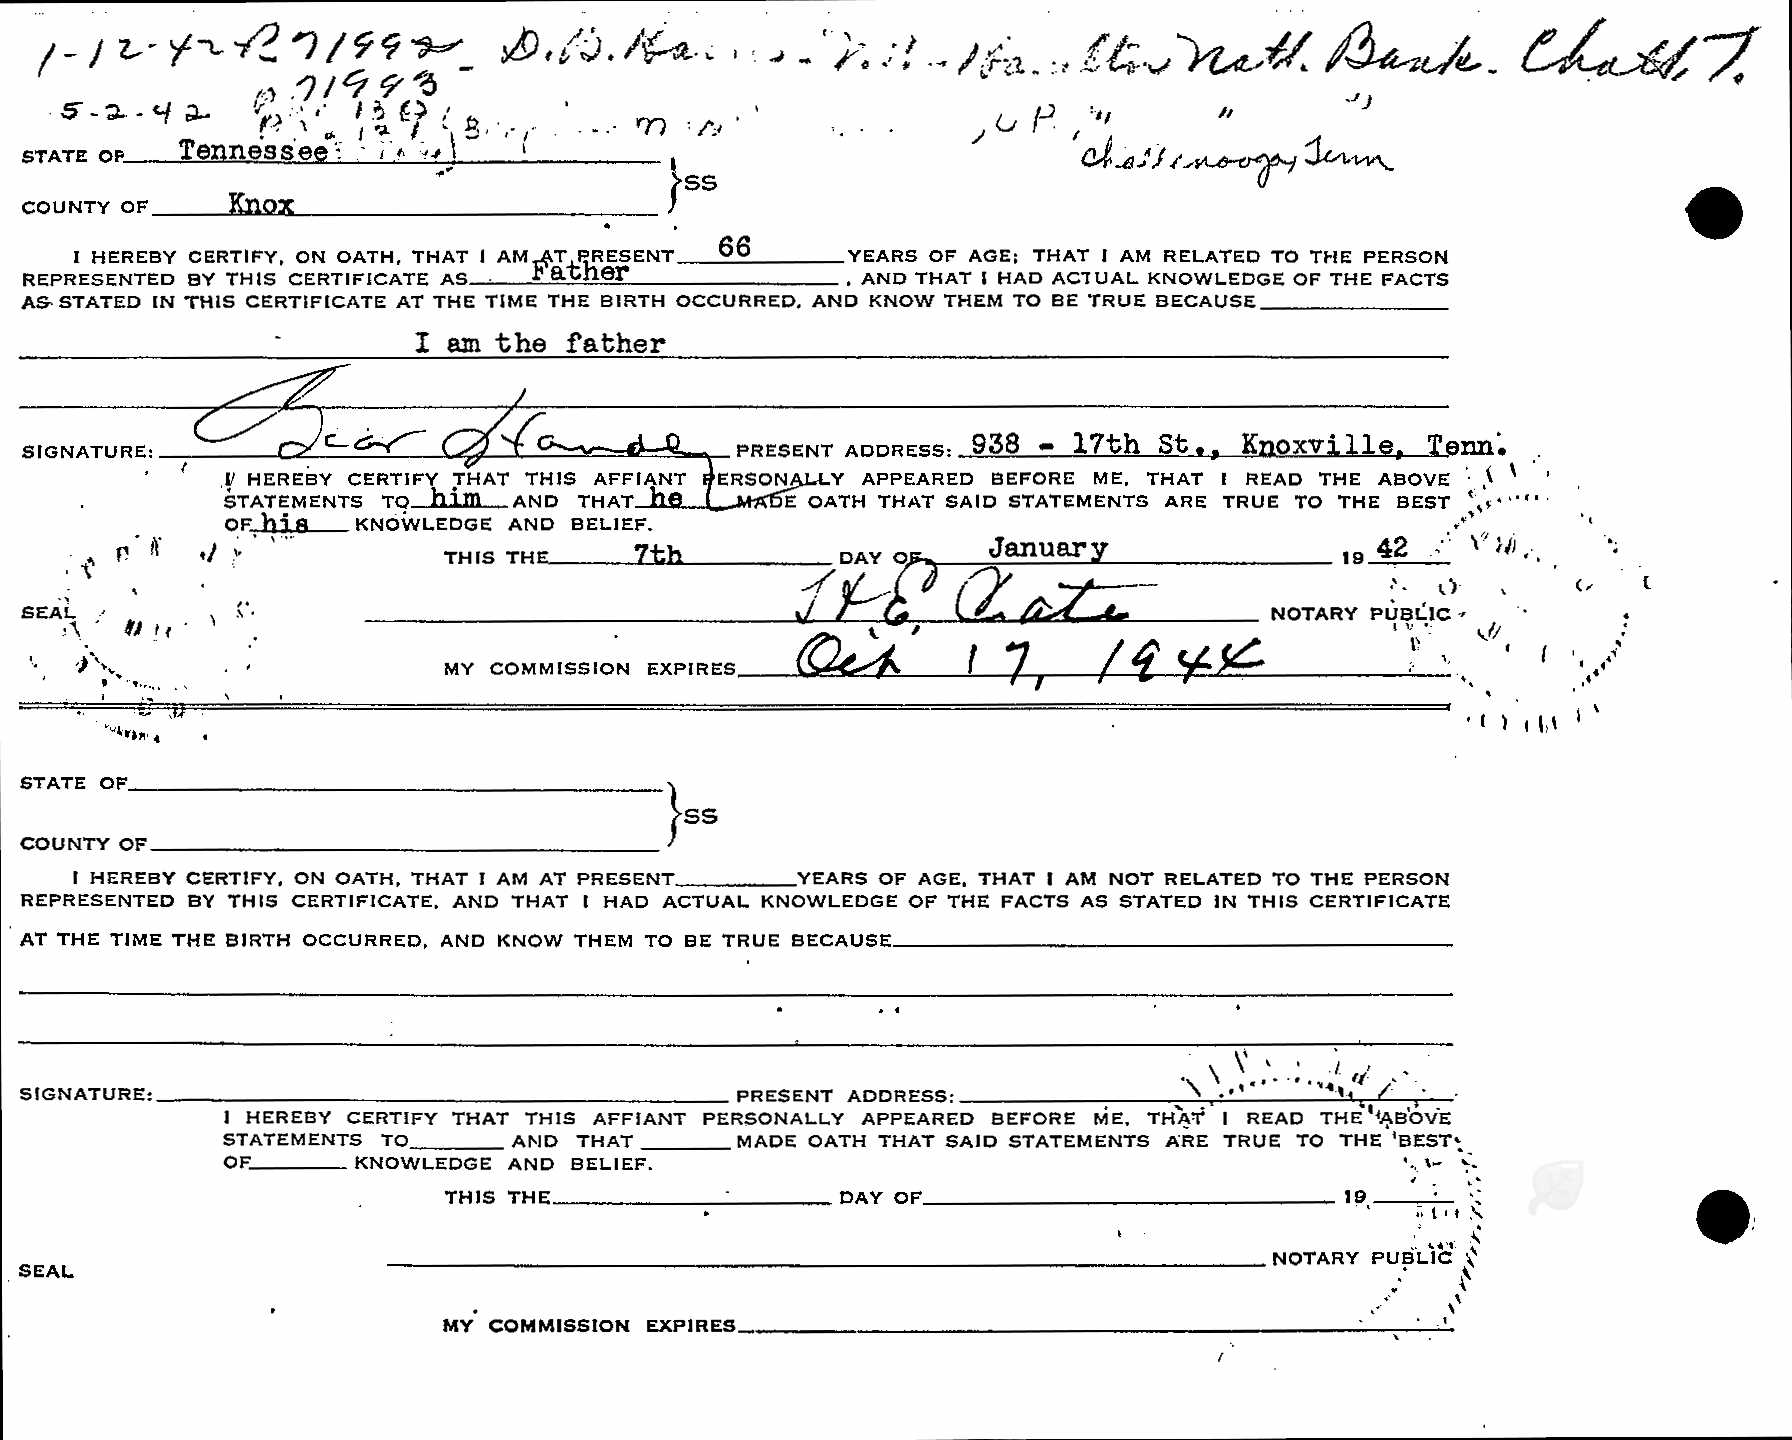 1-12-42 R 71992 - D.B. - Hamilton Natl. Bank. Chatt. T.
71993
5-2-42 " " "
STATE OF Tennessee Chattanooga, Tenn
}SS
COUNTY OF Knox
I HEREBY CERTIFY, ON OATH, THAT I AM AT PRESENT 66 YEARS OF AGE; THAT I AM RELATED TO THE PERSON
REPRESENTED BY THIS CERTIFICATE AS Father, AND THAT I HAD ACTUAL KNOWLEDGE OF THE FACTS
AS STATED IN THIS CERTIFICATE AT THE TIME THE BIRTH OCCURRED, AND KNOW THEM TO BE TRUE BECAUSE
I am the father
SIGNATURE: PRESENT ADDRESS: 938 - 17th St., Knoxville, Tenn.
I HEREBY CERTIFY THAT THIS AFFIANT PERSONALLY APPEARED BEFORE ME, THAT I READ THE ABOVE
STATEMENTS TO him AND THAT he MADE OATH THAT SAID STATEMENTS ARE TRUE TO THE BEST
OF his KNOWLEDGE AND BELIEF.
THIS THE 7th DAY OF January 19 42
SEAL H E NOTARY PUBLIC
MY COMMISSION EXPIRES Oct 17, 1944
STATE OF
}SS
COUNTY OF
I HEREBY CERTIFY, ON OATH, THAT I AM AT PRESENT YEARS OF AGE, THAT I AM NOT RELATED TO THE PERSON
REPRESENTED BY THIS CERTIFICATE, AND THAT I HAD ACTUAL KNOWLEDGE OF THE FACTS AS STATED IN THIS CERTIFICATE
AT THE TIME THE BIRTH OCCURRED, AND KNOW THEM TO BE TRUE BECAUSE
SIGNATURE: PRESENT ADDRESS:
I HEREBY CERTIFY THAT THIS AFFIANT PERSONALLY APPEARED BEFORE ME, THAT I READ THE ABOVE
STATEMENTS TO AND THAT MADE OATH THAT SAID STATEMENTS ARE TRUE TO THE BEST
OF KNOWLEDGE AND BELIEF.
THIS THE DAY OF 19
SEAL NOTARY PUBLIC
MY COMMISSION EXPIRES